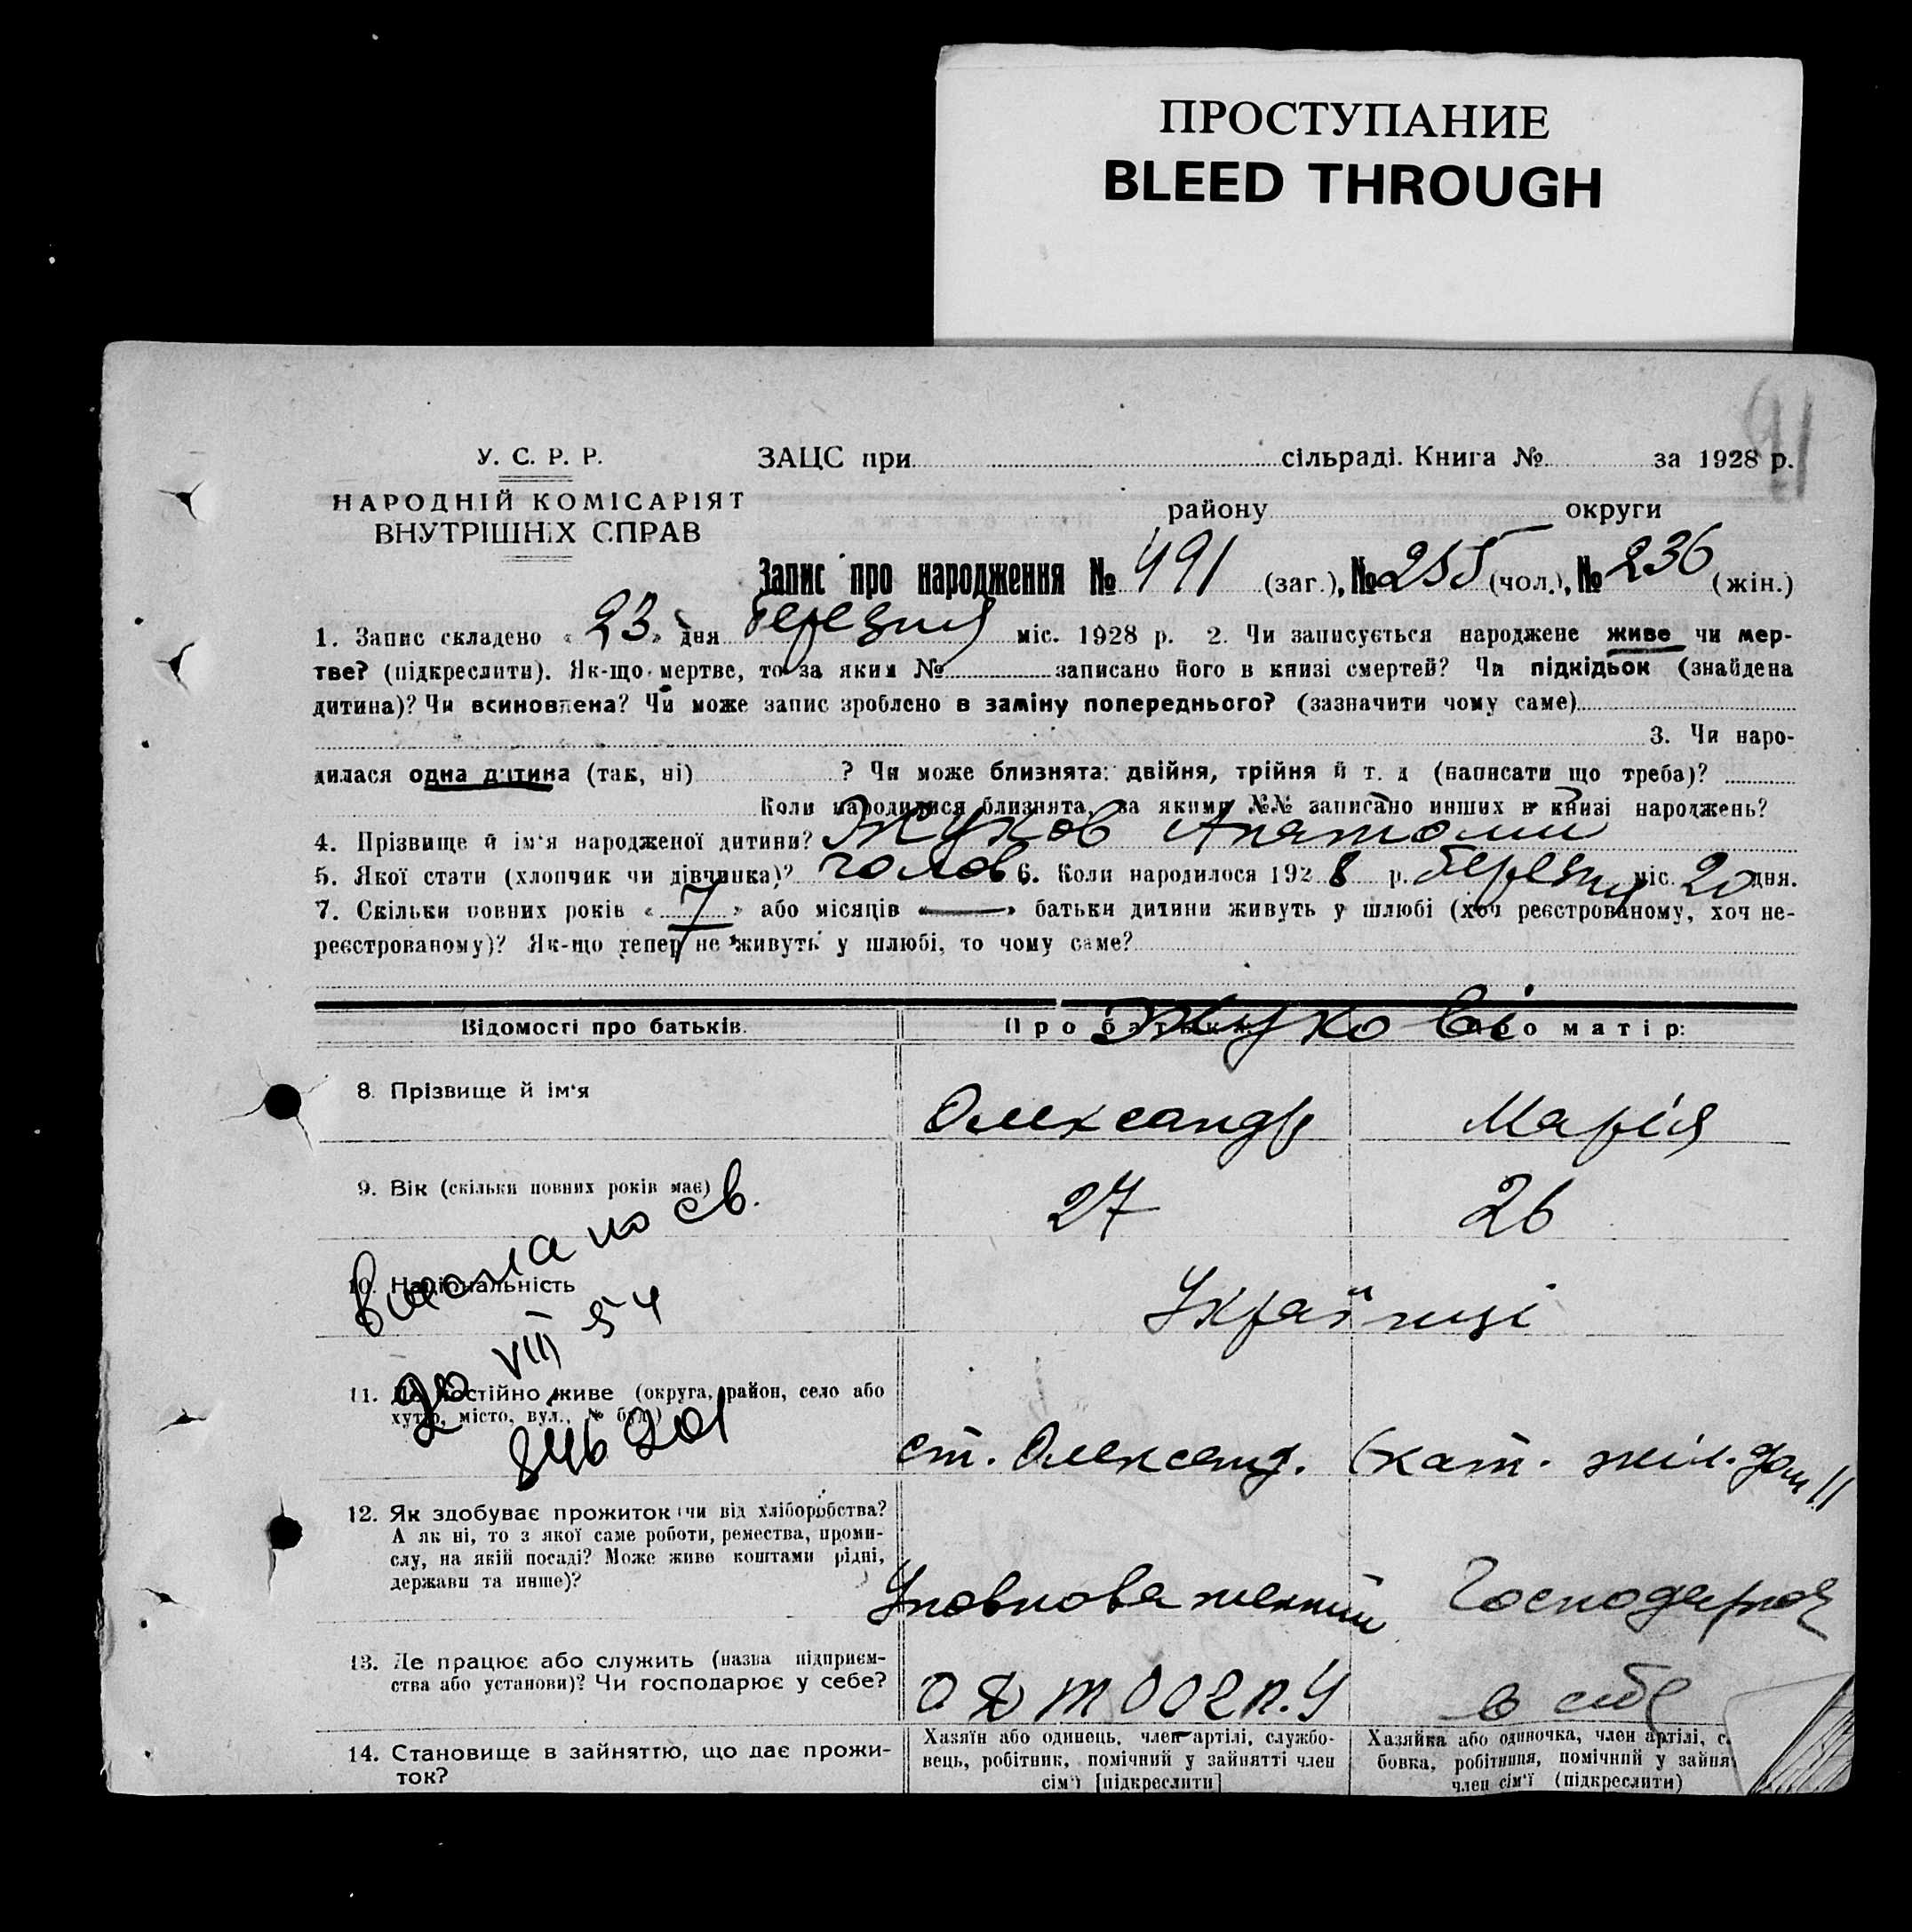 ПРОСТУПАНИЕ
BLEED THROUGH
91
У. С. Р. Р.
НАРОДНІЙ КОМІСАРІЯТ
ВНУТРІШНІХ СПРАВ
ЗАЦС при сільраді. Книга № за 1928 р.
району округи
Запис про народження № 491 (заг.), № 255 (чол.), № 236 (жін.)
1. Запис складено « 23 » дня березня міс. 1928 р. 2. Чи записується народжене живе чи мер-
тве? (підкреслити). Як-що мертве, то за яким № записано його в книзі смертей? Чи підкідьок (знайдена
дитина)? Чи всиновлена? Чи може запис зроблено в заміну попереднього? (зазначити чому саме)
3. Чи наро-
дилася одна дитина (так, ні) ? Чи може близнята: двійня, трійня й т. д (написати що треба)?
Коли народилися близнята, за якими №№ записано инших в книзі народжень?
4. Прізвище й ім'я народженої дитини? Жуков Анатолий
5. Якої стати (хлопчик чи дівчинка)? чолов 6. Коли народилося 1928 р. березня міс. 20 дня.
7. Скільки повних років « 7 » або місяців « — » батьки дитини живуть у шлюбі (хоч реєстрованому, хоч не-
реєстрованому)? Як-що тепер не живуть у шлюбі, то чому саме?
Відомості про батьків. Про батька: Про матір:
Жукові
8. Прізвище й ім'я Олександр Марія
9. Вік (скільки повних років має) 27 26
10. Національність Українці
св.
VIII 54
11. Де постійно живе (округа, район, село або
хутір, місто, вул., № буд.)
ст. Олександ. жил. дом 11
12. Як здобуває прожиток (чи від хліборобства?
А як ні, то з якої саме роботи, ремества, проми-
слу, на якій посаді? Може живе коштами рідні,
держави та инше)?
Уповноважений Господарка
13. Де працює або служить (назва підприєм-
ства або установи)? Чи господарює у себе?
О Д Т О О Г П. У в себе
14. Становище в зайняттю, що дає прожи-
ток?
Хазяїн або одинець, член артілі, службо-
вець, робітник, помічний у зайнятті член
сім'ї [підкреслити]
Хазяйка або одиночка, член артілі, с
бовка, робітниця, помічний у зайня
член сім'ї (підкреслити)